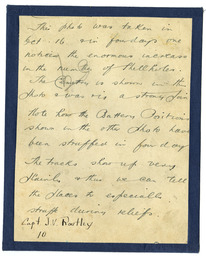 This photo was taken in
Oct. 16 & in four days one
notices the enormous increase
in the number of shellholes.
The is shown in this
photo & was in a strong
Note how the Battery Positions
shown in the other photo have
been straffed in four days
The tracks show up very
plainly & thus we can tell
the places to especially
straff during reliefs
Capt J.V.
10